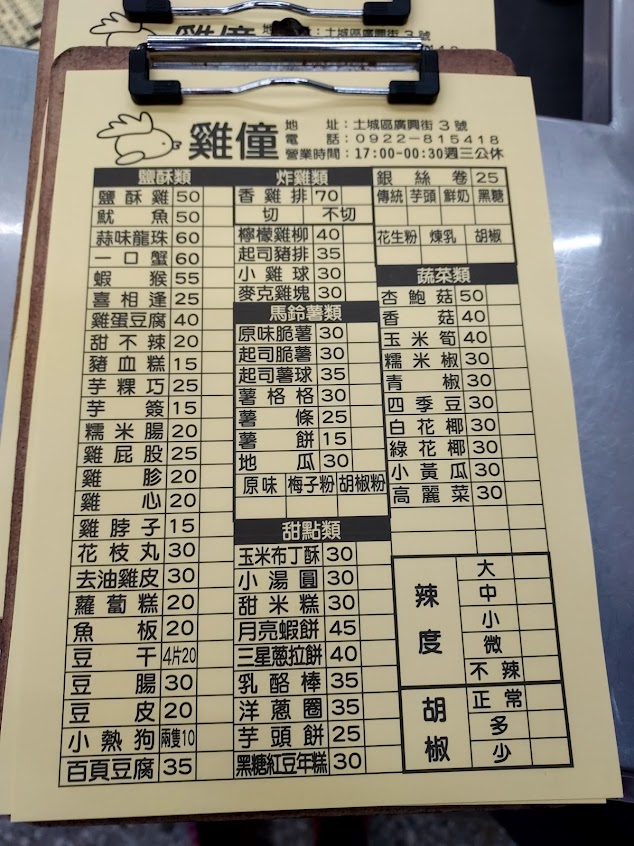 雞僮
地址：土城區廣興街3號
電話：0922-815418
營業時間：17:00-00:30週三公休
鹽酥類
鹽酥雞 50
魷魚 50
蒜味龍珠 60
一口蟹 60
蝦猴 55
喜相逢 25
雞蛋豆腐 40
甜不辣 20
豬血糕 15
芋粿巧 25
芋簽 15
糯米腸 20
雞屁股 25
雞胗 20
雞心 20
雞脖子 15
花枝丸 30
去油雞皮 30
蘿蔔糕 20
魚板 20
豆干 4片20
豆腸 30
豆皮 20
小熱狗 兩隻10
百頁豆腐 35
炸雞類
香雞排 70
切 不切
檸檬雞柳 40
起司豬排 35
小雞球 30
麥克雞塊 30
馬鈴薯類
原味脆薯 30
起司脆薯 30
起司薯球 35
薯格格 30
薯條 25
薯餅 15
地瓜 30
原味 梅子粉 胡椒粉
甜點類
玉米布丁酥 30
小湯圓 30
甜米糕 30
月亮蝦餅 45
三星蔥拉餅 40
乳酪棒 35
洋蔥圈 35
芋頭餅 25
黑糖紅豆年糕 30
銀絲卷 25
傳統 芋頭 鮮奶 黑糖
花生粉 煉乳 胡椒
蔬菜類
杏鮑菇 50
香菇 40
玉米筍 40
糯米椒 30
青椒 30
四季豆 30
白花椰 30
綠花椰 30
小黃瓜 30
高麗菜 30
辣度
大
中
小
微
不辣
胡椒
正常
多
少